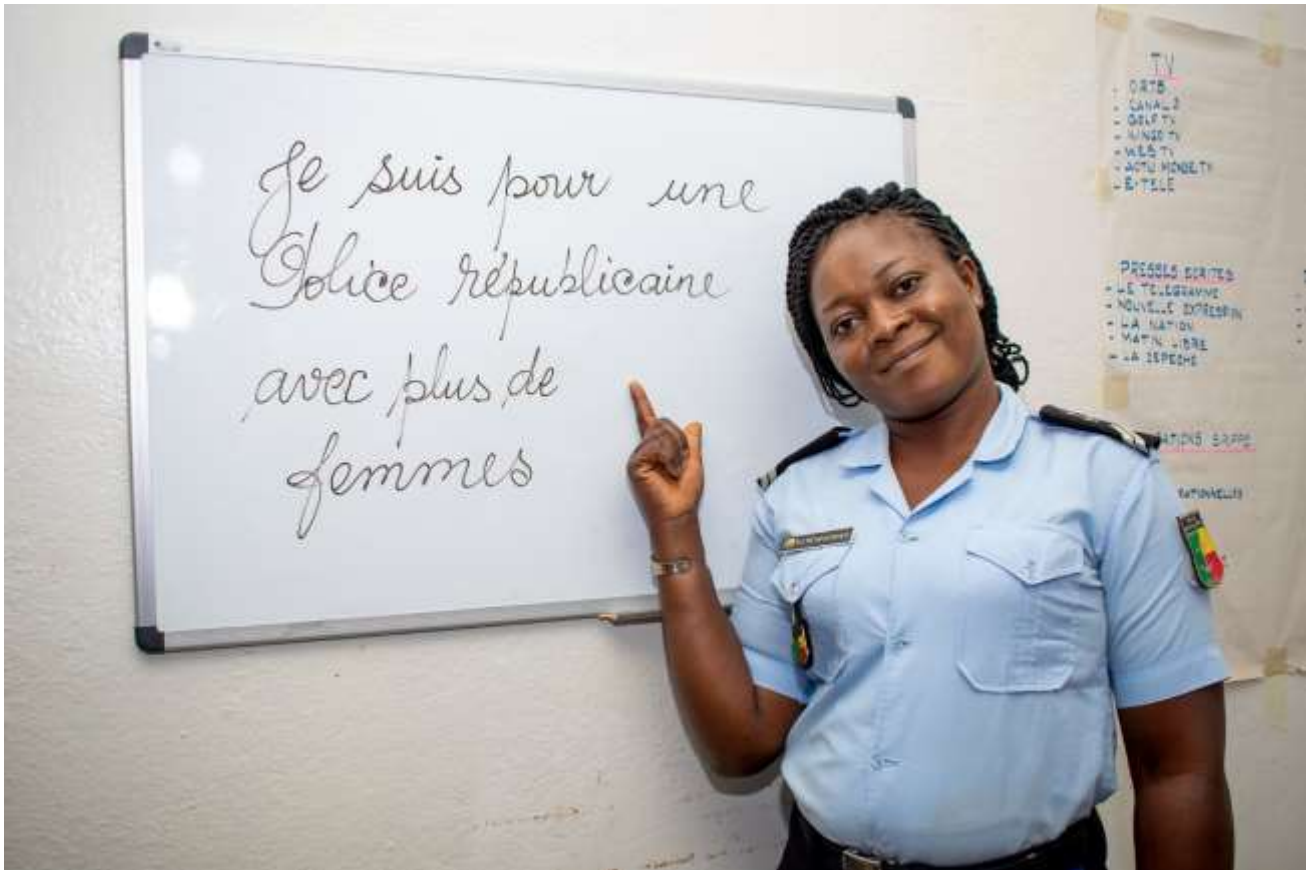 Je suis pour une
Police républicaine
avec plus de
femmes
TV
- ORTB
- CANAL 3
- GOLF TV
- WEB TV
- ACTU MONDE TV
- E-TELE
PRESSES ECRITES
- LE TELEGRAMME
- NOUVELLE EXPRESSION
- LA NATION
- MATIN LIBRE
- LA DEPECHE